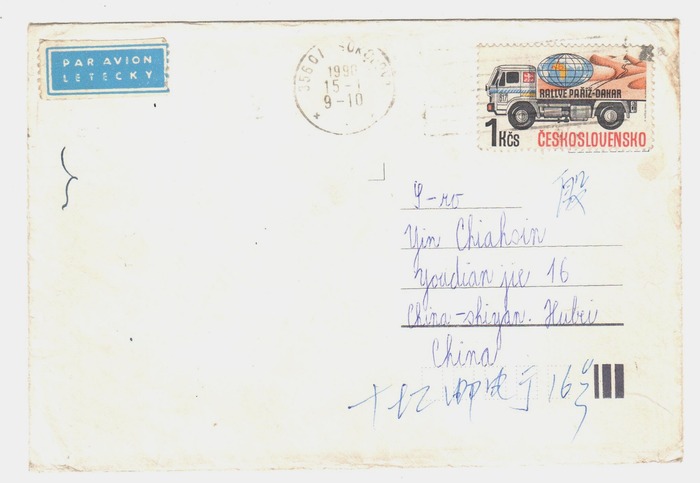 PAR AVION
LETECKY
35601 SOKOLOV
1990
15-1
9-10
RALLYE PAŘÍŽ-DAKAR
1Kčs ČESKOSLOVENSKO
S-ro 殷
Yin Chiahsin
Youdian jie 16
China-shiyan. Hubei
China
十红邮电于16号